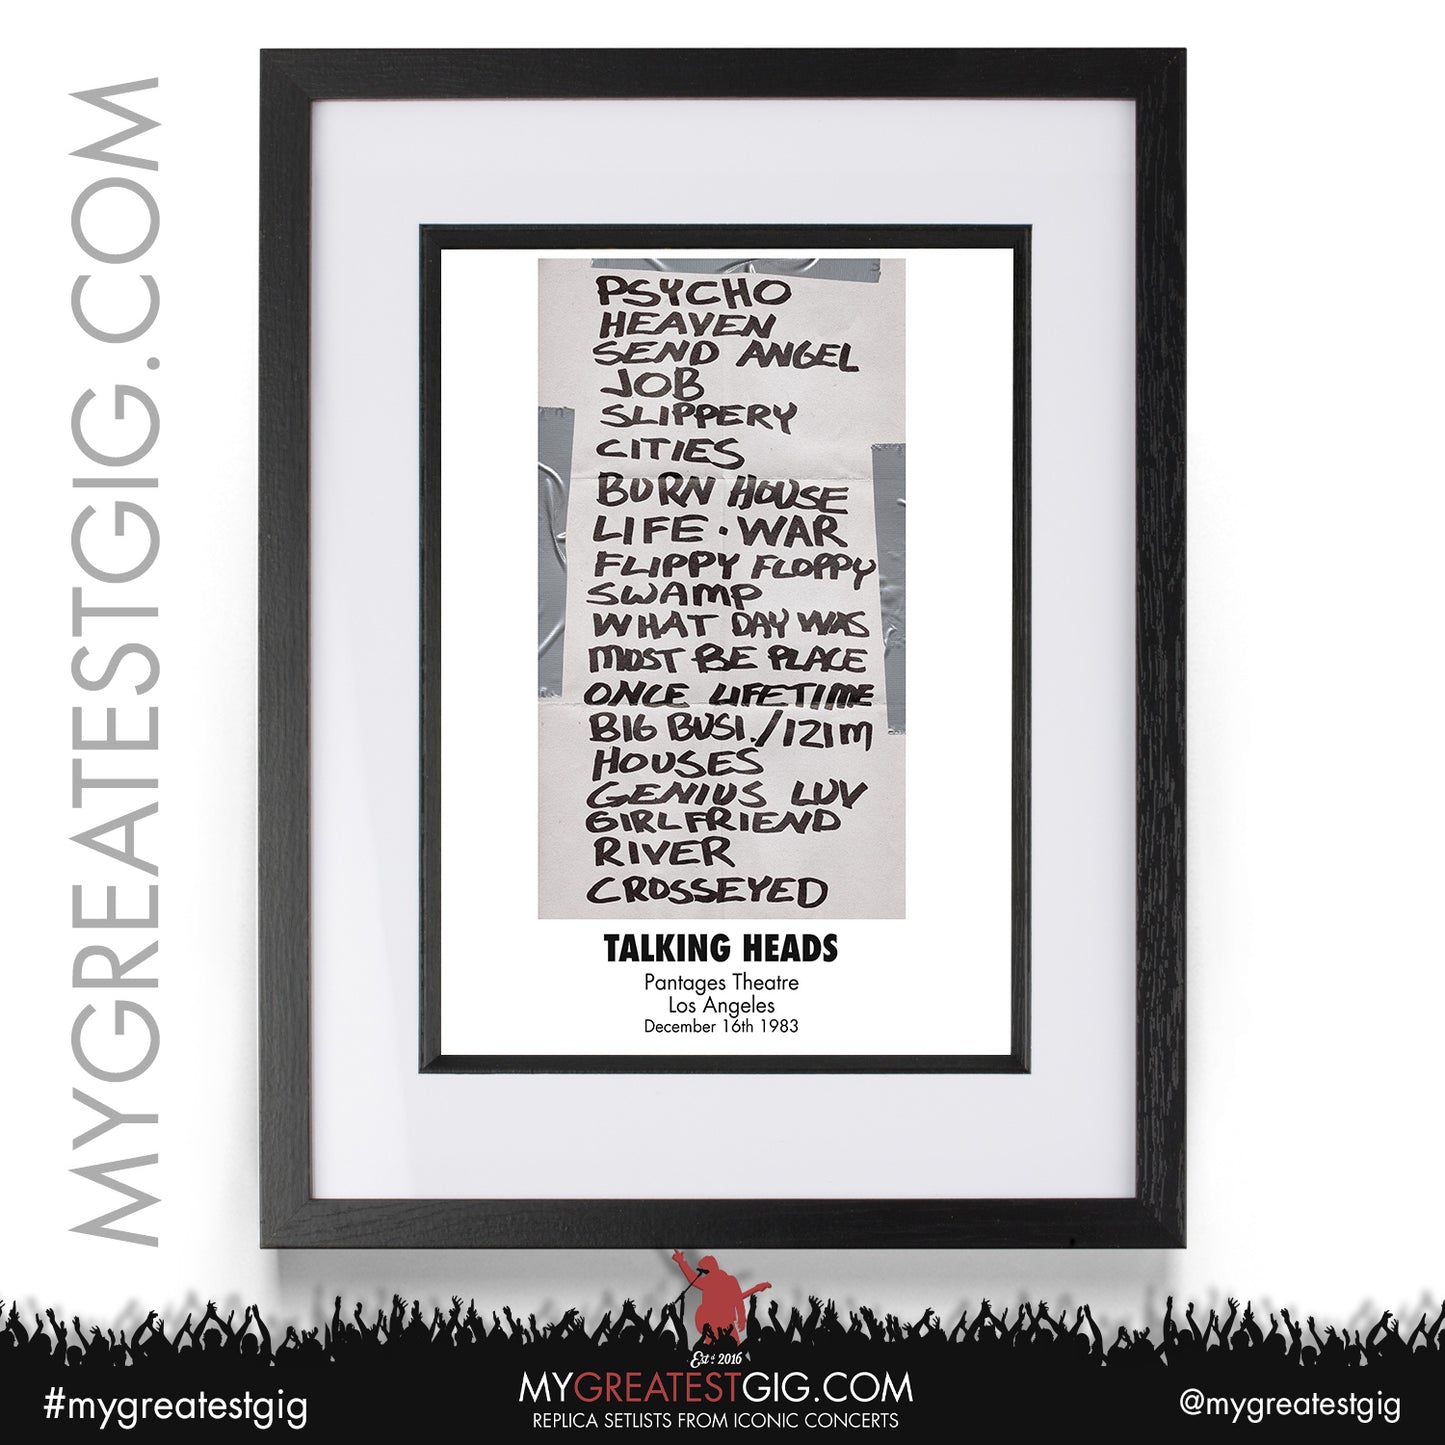 MYGREATESTGIG.COM
PSYCHO
HEAVEN
SEND ANGEL
JOB
SLIPPERY
CITIES
BURN HOUSE
LIFE · WAR
FLIPPY FLOPPY
SWAMP
WHAT DAY WAS
MUST BE PLACE
ONCE LIFETIME
BIG BUSI./121M
HOUSES
GENIUS LUV
GIRLFRIEND
RIVER
CROSSEYED
TALKING HEADS
Pantages Theatre
Los Angeles
December 16th 1983
Est d 2016
#mygreatestgig
MYGREATESTGIG.COM
REPLICA SETLISTS FROM ICONIC CONCERTS
@mygreatestgig